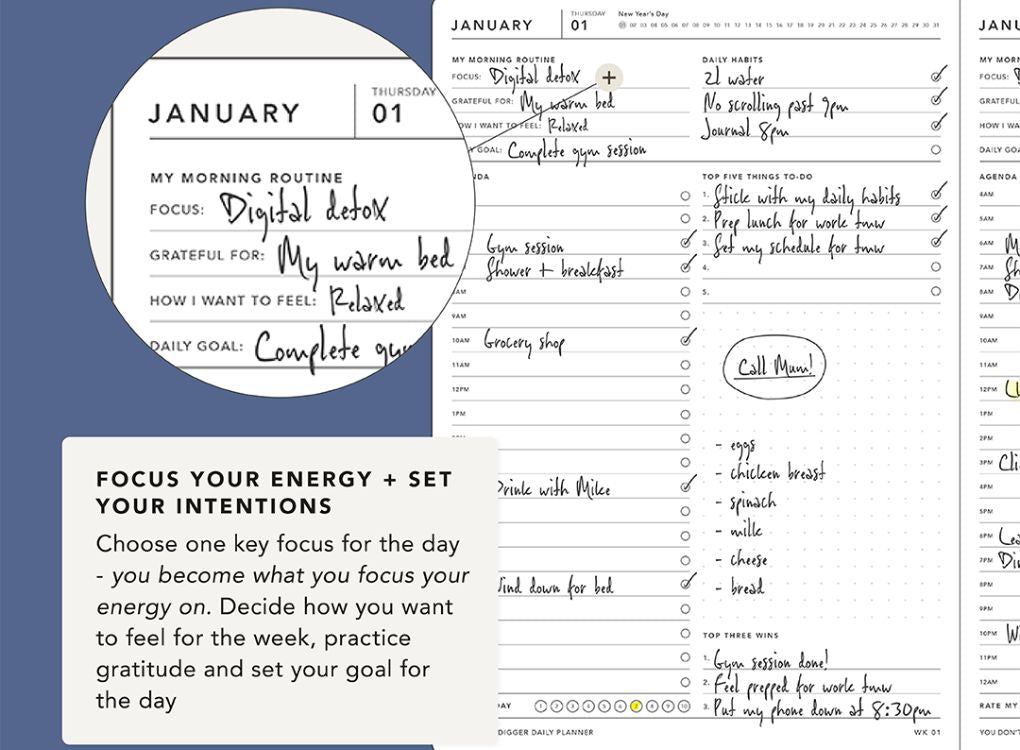 JANUARY
THURSDAY
01
MY MORNING ROUTINE
FOCUS: Digital detox
GRATEFUL FOR: My warm bed
HOW I WANT TO FEEL: Relaxed
DAILY GOAL: Complete gym
FOCUS YOUR ENERGY + SET
YOUR INTENTIONS
Choose one key focus for the day
- you become what you focus your
energy on. Decide how you want
to feel for the week, practice
gratitude and set your goal for
the day
JANUARY
THURSDAY
01
New Year's Day
01 02 03 04 05 06 07 08 09 10 11 12 13 14 15 16 17 18 19 20 21 22 23 24 25 26 27 28 29 30 31
MY MORNING ROUTINE
FOCUS: Digital detox
+
GRATEFUL FOR: My warm bed
HOW I WANT TO FEEL: Relaxed
GOAL: Complete gym session
NDA
Gym session
Shower + breakfast
AM
9AM
10AM Grocery shop
11AM
12PM
1PM
Drink with Mike
Wind down for bed
DAY 1 2 3 4 5 6 7 8 9 10
DIGGER DAILY PLANNER
DAILY HABITS
2l water
No scrolling past 9pm
Journal 8pm
TOP FIVE THINGS TO-DO
1. Stick with my daily habits
2. Prep lunch for work tmw
3. Set my schedule for tmw
4.
5.
Call Mum!
- eggs
- chicken breast
- spinach
- milk
- cheese
- bread
TOP THREE WINS
1. Gym session done!
2. Feel prepped for work tmw
3. Put my phone down at 8:30pm
WK 01
JANU
MY MORN
FOCUS:
GRATEFUL
HOW I WA
DAILY GOA
AGENDA
4AM
5AM
6AM
7AM
8AM
9AM
10AM
11AM
12PM
1PM
2PM
3PM
4PM
5PM
6PM
7PM
8PM
9PM
10PM
11PM
12AM
RATE MY
YOU DON'T